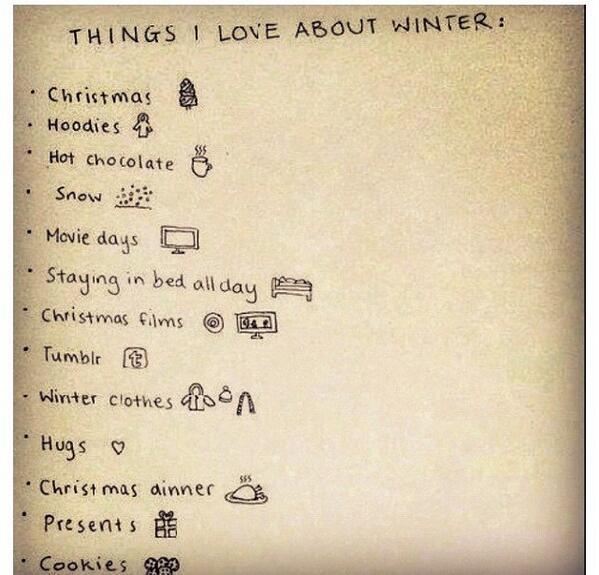 THINGS I LOVE ABOUT WINTER:
· Christmas
· Hoodies
· Hot chocolate
· Snow
· Movie days
· Staying in bed all day
· Christmas films
· Tumblr t
- Winter clothes
· Hugs
· Christmas dinner
· Presents
· Cookies